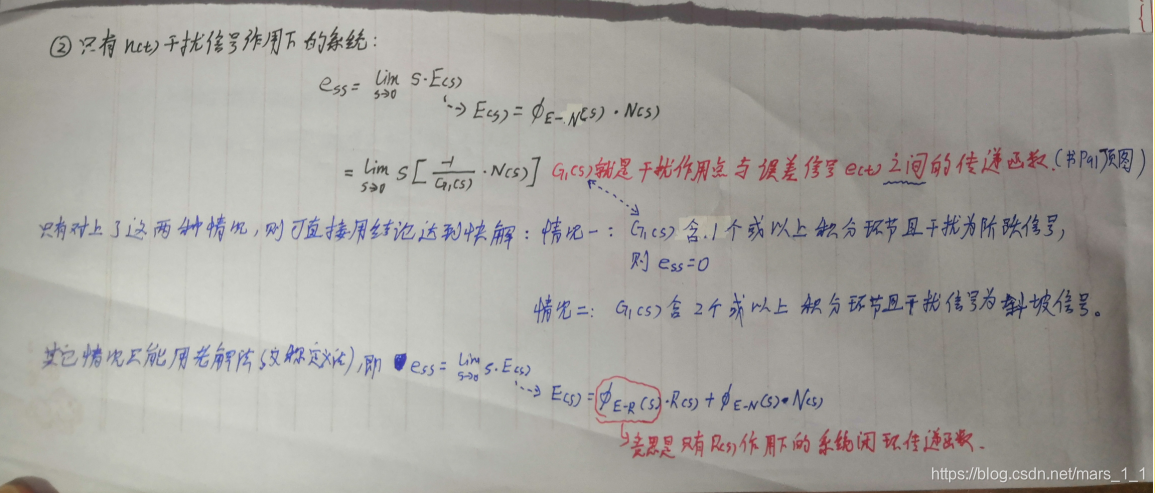 ② 只有 n(t) 干扰信号作用下的系统:
ess = lim s→0 S·E(s)
E(s) = ϕE-N(s)·N(s)
= lim s→0 S[-1/G1(s)·N(s)] G1(s)就是干扰作用点与误差信号e(t)之间的传递函数.(书P91顶图)
只有对上了这两种情况,则可直接用结论达到快解: 情况一: G1(s)含1个或以上积分环节且干扰为阶跃信号,
则 ess=0
情况二: G1(s)含2个或以上积分环节且干扰信号为斜坡信号。
其它情况只能用老解法(又称定义法),即 ess = lim s→0 S·E(s)
E(s) = ϕE-R(s)·R(s) + ϕE-N(s)·N(s)
意思是只有R(s)作用下的系统闭环传递函数.
https://blog.csdn.net/mars_1_1